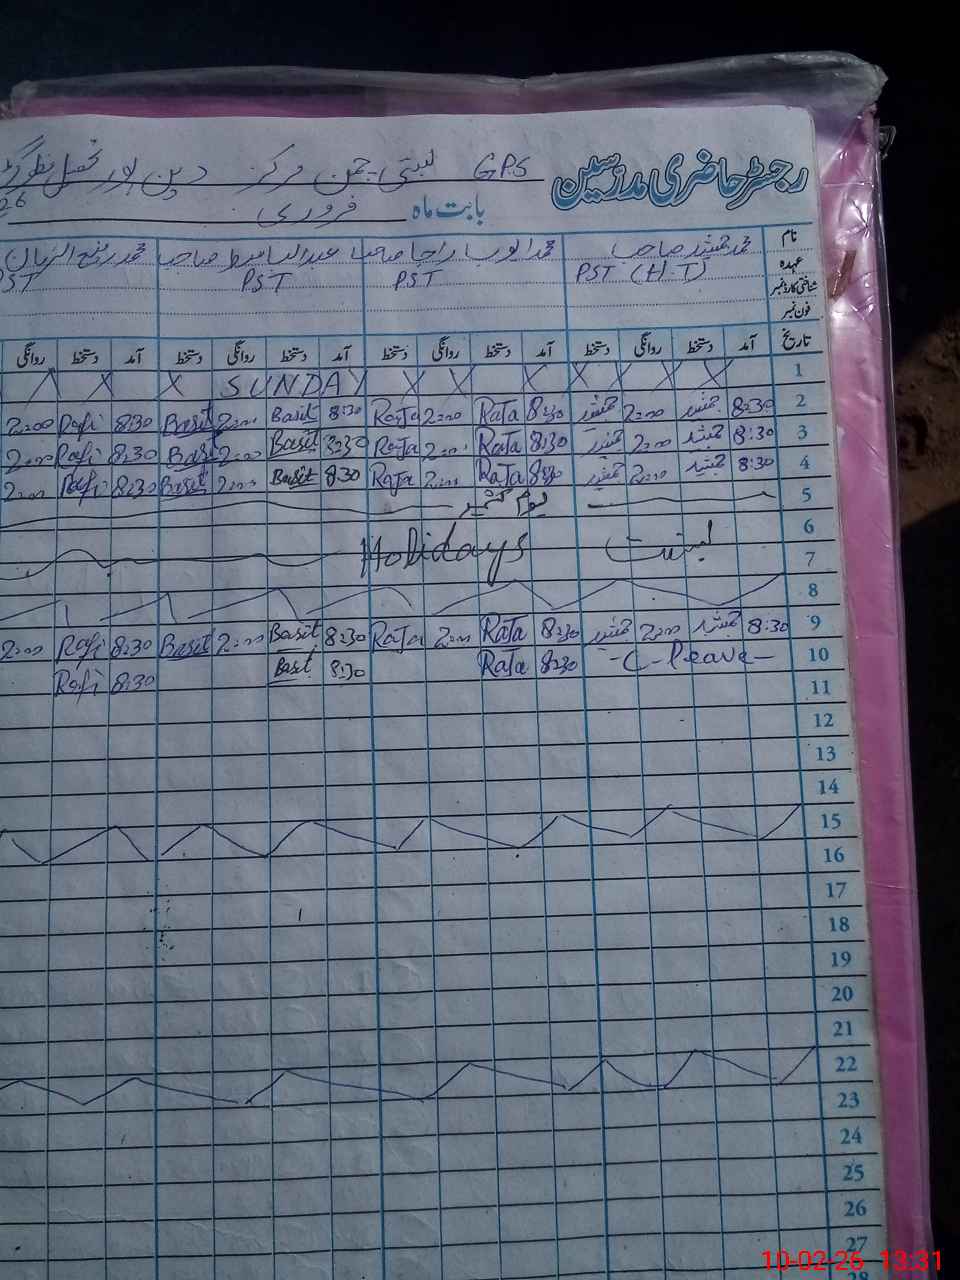 رجسٹر حاضری مدرسین GPS بستی چمن مرکز دین پور تحصیل
بابت ماہ فروری 26
نام محمد جمشید صاحب محمد ایوب راجا صاحب عبدالباسط صاحب محمد رفیع الزمان
عہدہ PST (HT) PST PST PST
شناختی کارڈ نمبر
فون نمبر
تاریخ آمد دستخط روانگی دستخط آمد دستخط روانگی دستخط آمد دستخط روانگی دستخط آمد دستخط روانگی
1 X X X X X X X SUNDAY X X
2 8:30 جمشید 2:00 جمشید 8:30 RaJa 2:00 RaJa 8:30 Basit 2:00 Basit 8:30 Rafi 2:00
3 8:30 جمشید 2:00 جمشید 8:30 RaJa 2:00 RaJa 8:30 Basit 2:00 Basit 8:30 Rafi 2:00
4 8:30 جمشید 2:00 جمشید 8:30 RaJa 2:00 RaJa 8:30 Basit 2:00 Basit 8:30 Rafi 2:00
5 یوم کشمیر
6
7 بسنت Holidays
8
9 8:30 جمشید 2:00 جمشید 8:30 RaJa 2:00 RaJa 8:30 Basit 2:00 Basit 8:30 Rafi 2:00
10 -C-leave- 8:30 RaJa 8:30 Basit 8:30 Rafi
11
12
13
14
15
16
17
18
19
20
21
22
23
24
25
26
27
28
10-02-26 13:31